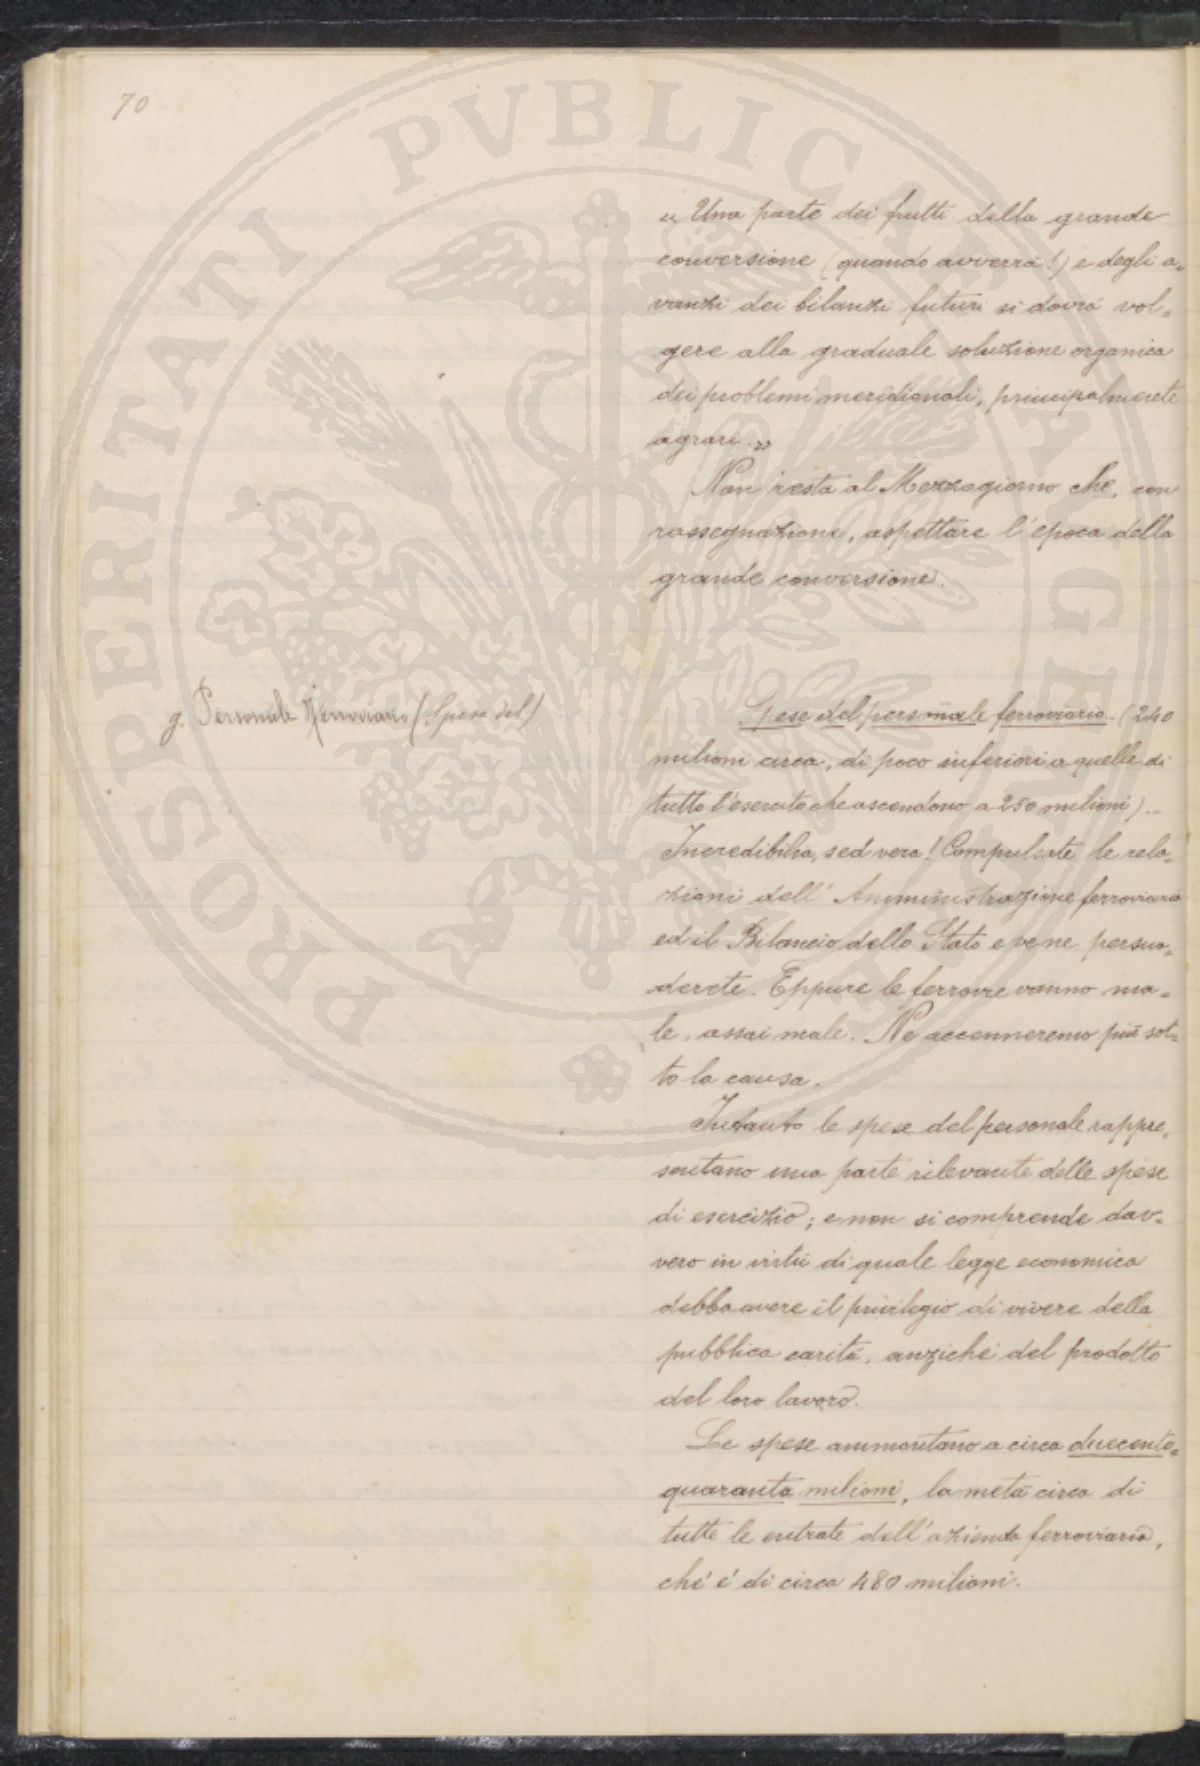 70
« Una parte dei frutti della grande
conversione (quando avverrà!) e degli a=
vanzi dei bilanzi futuri si dovrà vol=
gere alla graduale soluzione organica
dei problemi meridionali, principalmente
agrari. »
Non resta al Mezzogiorno che, con
rassegnazione, aspettare l'epoca della
grande conversione.
g. Personale ferroviario (Spese del)
Spese del personale ferroviario - (240
milioni circa, di poco inferiori a quelle di
tutto l'esercito che ascendono a 250 milioni) ..
Incredibilia, sed vera! Compulsate le rela=
zioni dell'Amministrazione ferroviaria
ed il Bilancio dello Stato e ve ne persua=
derete. Eppure le ferrovie vanno ma=
le, assai male. Ne accenneremo più sot=
to la causa.
Intanto le spese del personale rappre=
sentano una parte rilevante delle spese
di esercizio; e non si comprende dav=
vero in virtù di quale legge economica
debba avere il privilegio di vivere della
pubblica carità, anziché del prodotto
del loro lavoro.
Le spese ammontano a circa duecento=
quaranta milioni, la metà circa di
tutte le entrate dell'azienda ferroviaria,
ché é di circa 480 milioni.
PROSPERITATI PVBLICAE AVGENDAE